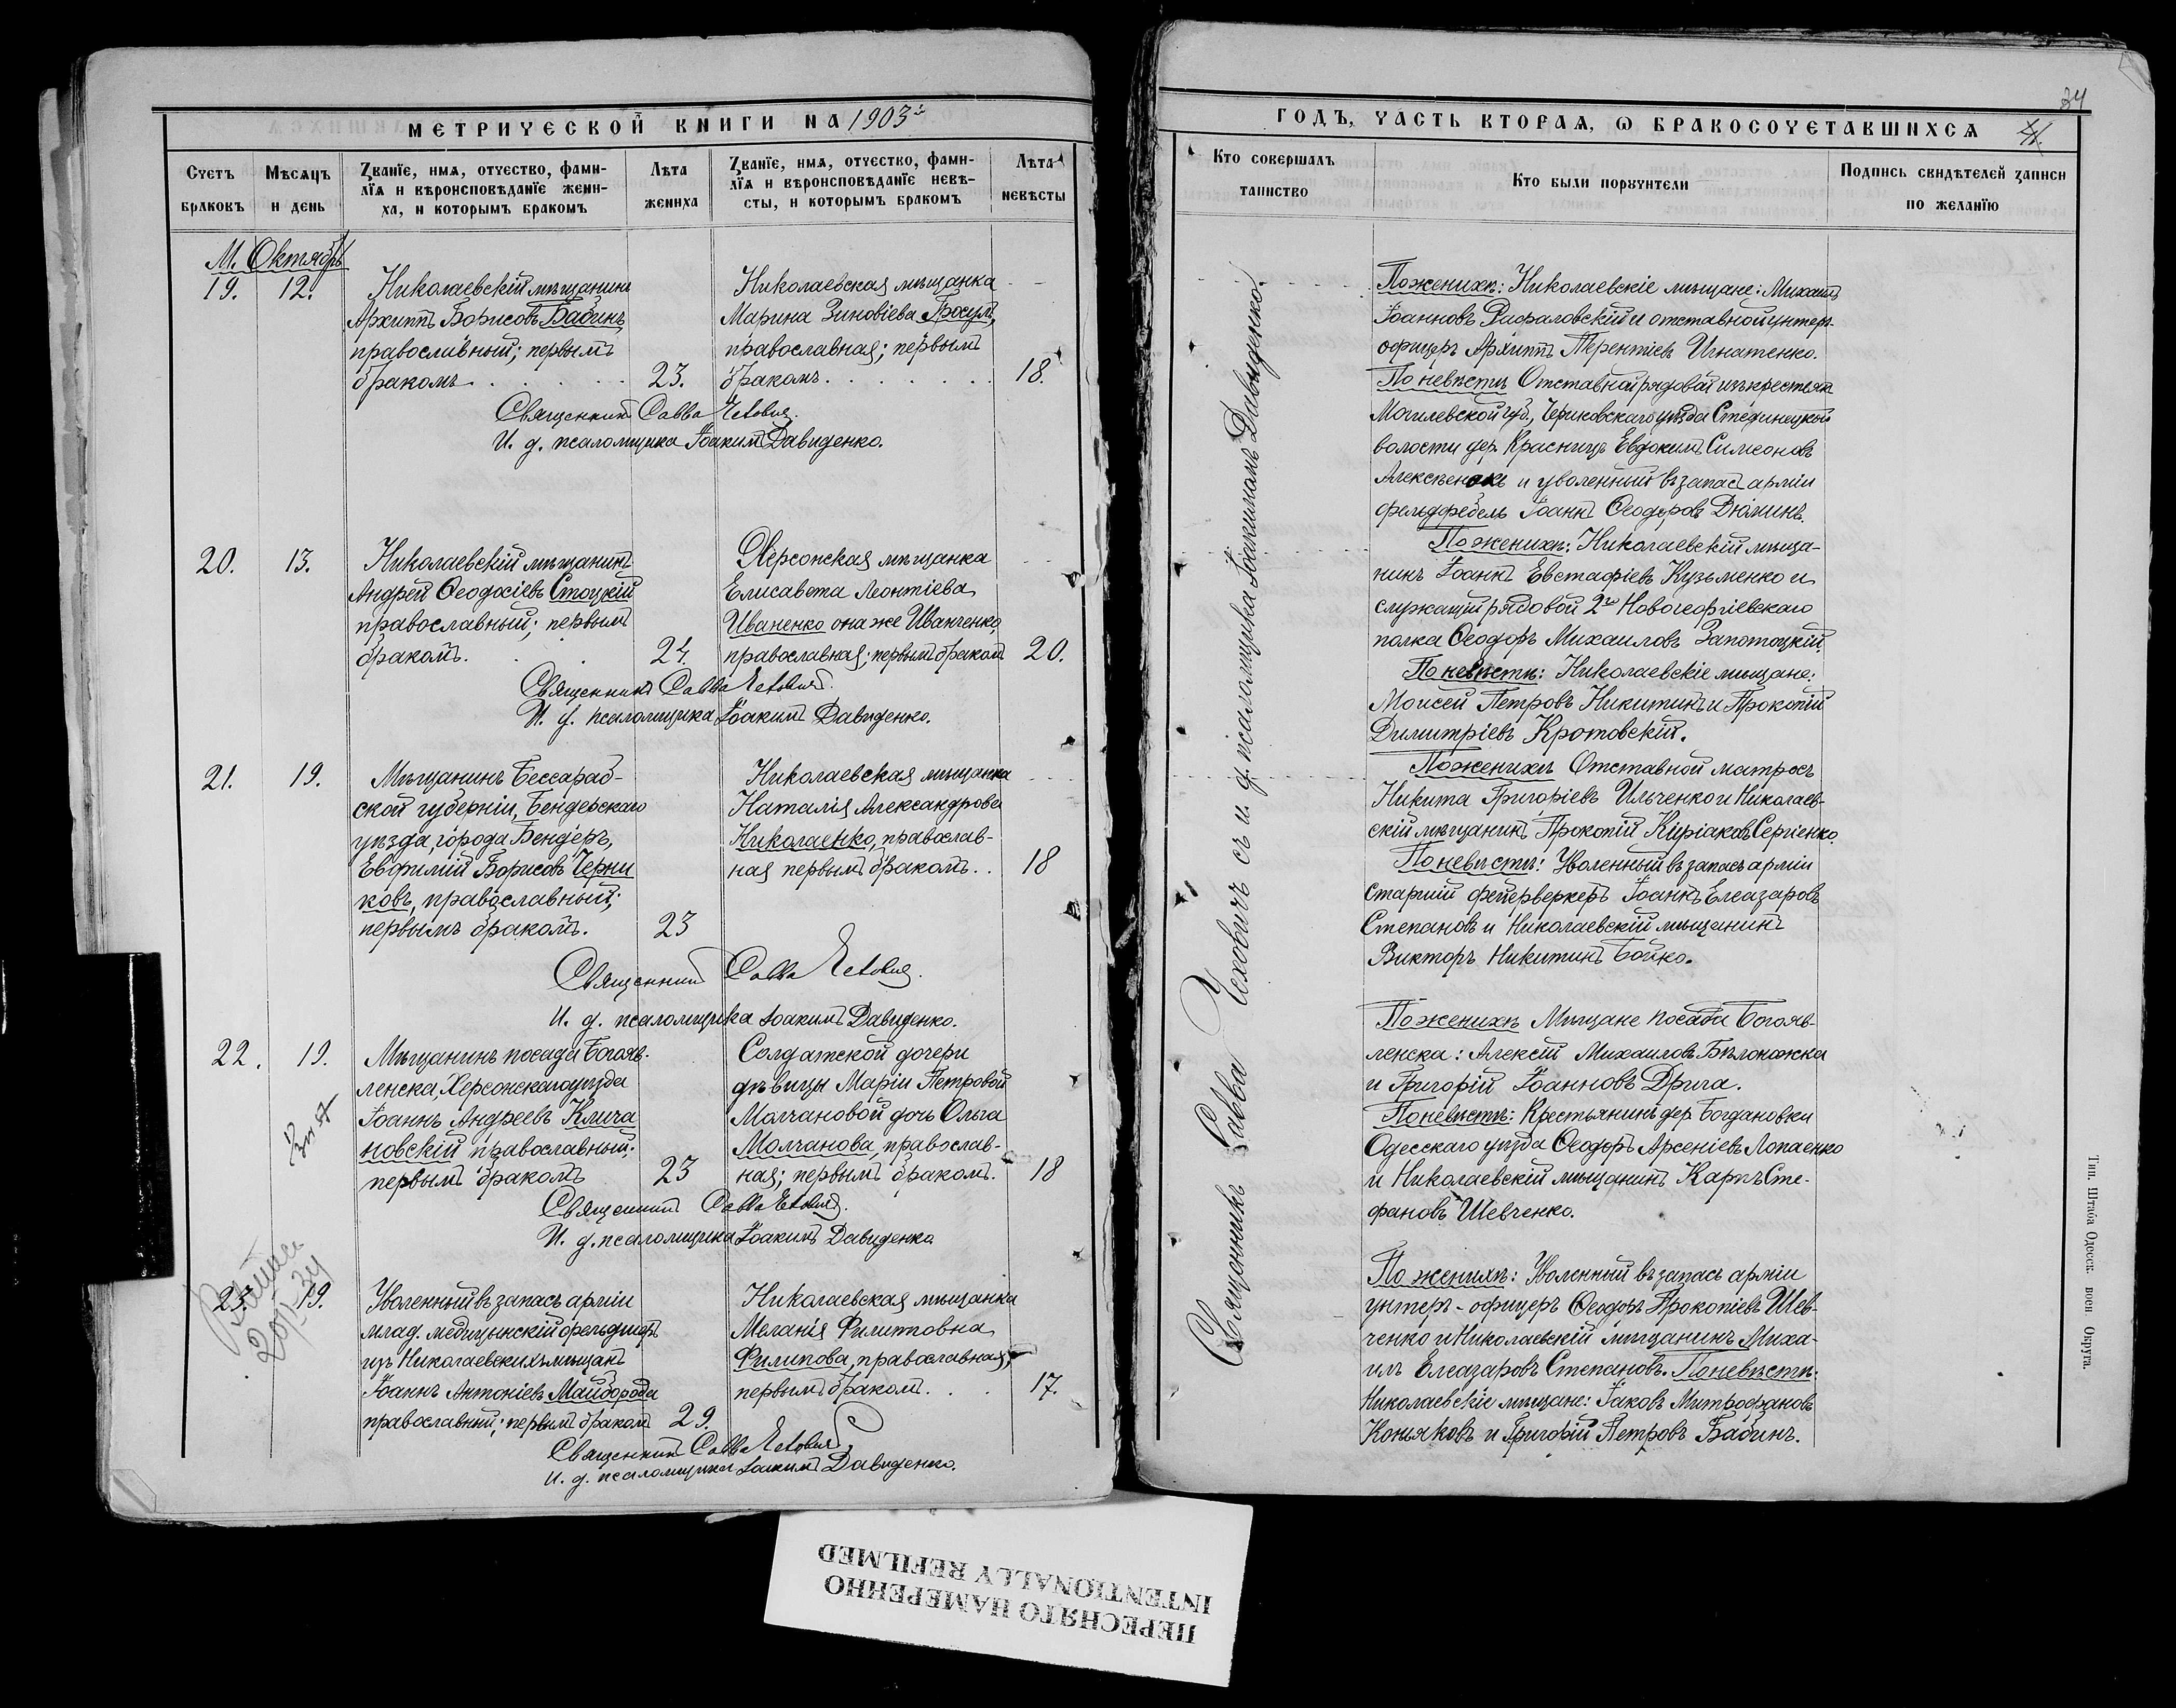 МЕТРИЧЕСКОЙ КНИГИ НА 1903й
Счетъ браковъ
Мѣсяцъ и день
Званїе, имя, отчество, фами-
лїя и вѣроисповѣданїе жени-
ха, и которымъ бракомъ
Лѣта жениха
Званїе, имя, отчество, фами-
лїя и вѣроисповѣданїе невѣ-
сты, и которымъ бракомъ
Лѣта невѣсты
М. Октябрь
19. 12.
Николаевскій мѣщанинъ
Архиппъ Борисовъ Бабинъ
православный; первымъ
бракомъ
23.
Николаевская мѣщанка
Марина Зиновіева Бросул,
православная; первымъ
бракомъ
18.
Священникъ Савва Чеховичъ.
И. д. псаломщика Іоакимъ Давиденко.
20. 13.
Николаевскій мѣщанинъ
Андрей Ѳеодосіевъ Стоцкій
православный; первымъ
бракомъ.
24.
Херсонская мѣщанка
Елисавета Леонтіева
Иваненко она же Иванченко,
православная; первымъ бракомъ
20.
Священникъ Савва Чеховичъ.
И. д. псаломщика Іоакимъ Давиденко.
21. 19.
Мѣщанинъ Бессараб-
ской губерніи, Бендерскаго
уѣзда, города Бендеръ,
Евфимій Борисовъ Черни
ковъ, православный;
первымъ бракомъ.
23
Николаевская мѣщанка
Наталія Александрова
Николаенко, православ-
ная первымъ бракомъ..
18
Священникъ Савва Чеховичъ.
И. д. псаломщика Іоакимъ Давиденко.
22. 19.
Мѣщанинъ посада Богояв-
ленска, Херсонскаго уѣзда
Іоаннъ Андреевъ Клича
новскій православный;
первымъ бракомъ
23
Солдатской дочери
дѣвицы Маріи Петровой
Молчановой дочь Ольга
Молчанова, православ-
ная; первымъ бракомъ.
18
Священникъ Савва Чеховичъ.
И. д. псаломщика Іоакимъ Давиденко
23. 19.
Уволенный въ запасъ арміи
млад. медицынскій фельдшеръ
изъ Николаевскихъ мѣщанъ
Іоаннъ Антоніевъ Майборода
православный; первымъ бракомъ
29.
Николаевская мѣщанка
Меланія Филиповна
Филипова, православная,
первымъ бракомъ.
17.
Священникъ Савва Чеховичъ
И. д. псаломщика Іоакимъ Давиденко.
34
ГОДЪ, ЧАСТЬ ВТОРАЯ, Ѡ БРАКОСОЧЕТАВШИХСЯ
Кто совершалъ таинство
Кто были поручители
Подпись свидѣтелей записи по желанїю
Священникъ Савва Чеховичъ съ и. д. псаломщика Іоакимомъ Давиденко.
По женихѣ: Николаевскіе мѣщане: Михаилъ
Іоанновъ Рафаловскій и отставной унтеръ-
офицеръ Архиппъ Терентіевъ Игнатенко.
По невѣстѣ Отставной рядовой изъ крестьянъ
Могилевской губ., Чериковскаго уѣзда
волости дер. Красницъ Евдокимъ Симеоновъ
Алексѣенокъ и уволенный въ запасъ арміи
фельдфебель Іоаннъ Ѳеодоровъ Дюминъ.
По женихѣ: Николаевскій мѣща-
нинъ Іоаннъ Евстафіевъ Кузьменко и
служащій рядовой 2го Новогеоргіевскаго
полка Ѳеодоръ Михаиловъ Запотоцкій.
По невѣстѣ: Николаевскіе мѣщане:
Моисей Петровъ Никитинъ и Прокопій
Димитріевъ Кротовскій.
По женихѣ Отставной матросъ
Никита Григоріевъ Ильченко и Николаев-
скій мѣщанинъ Прокопій Киріаковъ Сергіенко.
По невѣстѣ: Уволенный въ запасъ арміи
старшій фейерверкеръ Іоаннъ Елеазаровъ
Степановъ и Николаевскій мѣщанинъ
Викторъ Никитинъ Бойко.
По женихѣ Мѣщане посада Богояв-
ленска: Алексій Михаиловъ Бѣлоножка
и Григорій Іоанновъ Дрига.
По невѣстѣ: Крестьянинъ дер Богдановки
Одесскаго уѣзда Ѳеодоръ Арсеніевъ Лопаенко
и Николаевскій мѣщанинъ Карпъ Сте-
фановъ Шевченко.
По женихѣ: Уволенный въ запасъ арміи
унтеръ-офицеръ Ѳеодоръ Прокопіевъ Шев-
ченко и Николаевскій мѣщанинъ Миха-
илъ Елеазаровъ Степановъ. По невѣстѣ:
Николаевскіе мѣщане: Іаковъ Митрофановъ
Коньяковъ и Григорій Петровъ Бабинъ.
Тип. Штаба Одесск. воен Округа.
ПЕРЕСНЯТО НАМЕРЕННО
INTENTIONALLY REFILMED